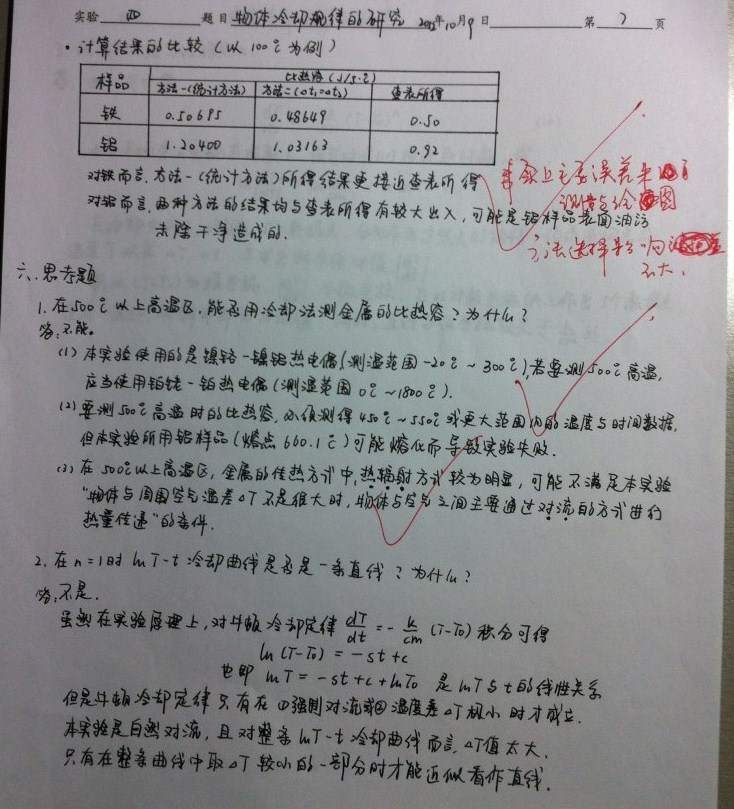 实验 四 题目 物体冷却规律的研究 2012年10月9日 第 7 页
· 计算结果的比较 (以100℃为例)
样品 比热容 (J/g·℃)
方法一(统计方法) 方法二(△t₁=△t₂) 查表所得
铁 0.50695 0.48649 0.50
铝 1.20400 1.03163 0.92
对铁而言,方法一(统计方法)所得结果更接近查表所得
对铝而言,两种方法的结果均与查表所得有较大出入,可能是铝样品表面油污
未除干净造成的.
实际上主要误差来
测量与绘图
方法选择影响
不大.
六.思考题
1. 在500℃以上高温区,能否用冷却法测金属的比热容?为什么?
答:不能。
(1) 本实验使用的是镍铬-镍铝热电偶(测温范围-20℃~300℃),若要测500℃高温,
应当使用铂铑-铂热电偶(测温范围0℃~1800℃).
(2) 要测500℃高温时的比热容,必须测得450℃~550℃或更大范围内的温度与时间数据,
但本实验所用铝样品(熔点660.1℃)可能熔化而导致实验失败.
(3) 在500℃以上高温区,金属的传热方式中,热辐射方式较为明显,可能不满足本实验
"物体与周围空气温差△T不是很大时,物体与空气之间主要通过对流的方式进行
热量传递"的条件.
2. 在n=1时 lnT-t 冷却曲线是否是一条直线?为什么?
答:不是.
虽然在实验原理上,对牛顿冷却定律 dT/dt = - k/cm (T-T₀) 积分可得
ln(T-T₀) = -st+c
也即 lnT = -st+c+lnT₀ 是lnT与t的线性关系
但是牛顿冷却定律只有在①强制对流或②温度差△T极小时才成立.
本实验是自然对流,且对整条lnT-t冷却曲线而言,△T值太大.
只有在整条曲线中取△T较小的一部分时才能近似看作直线.